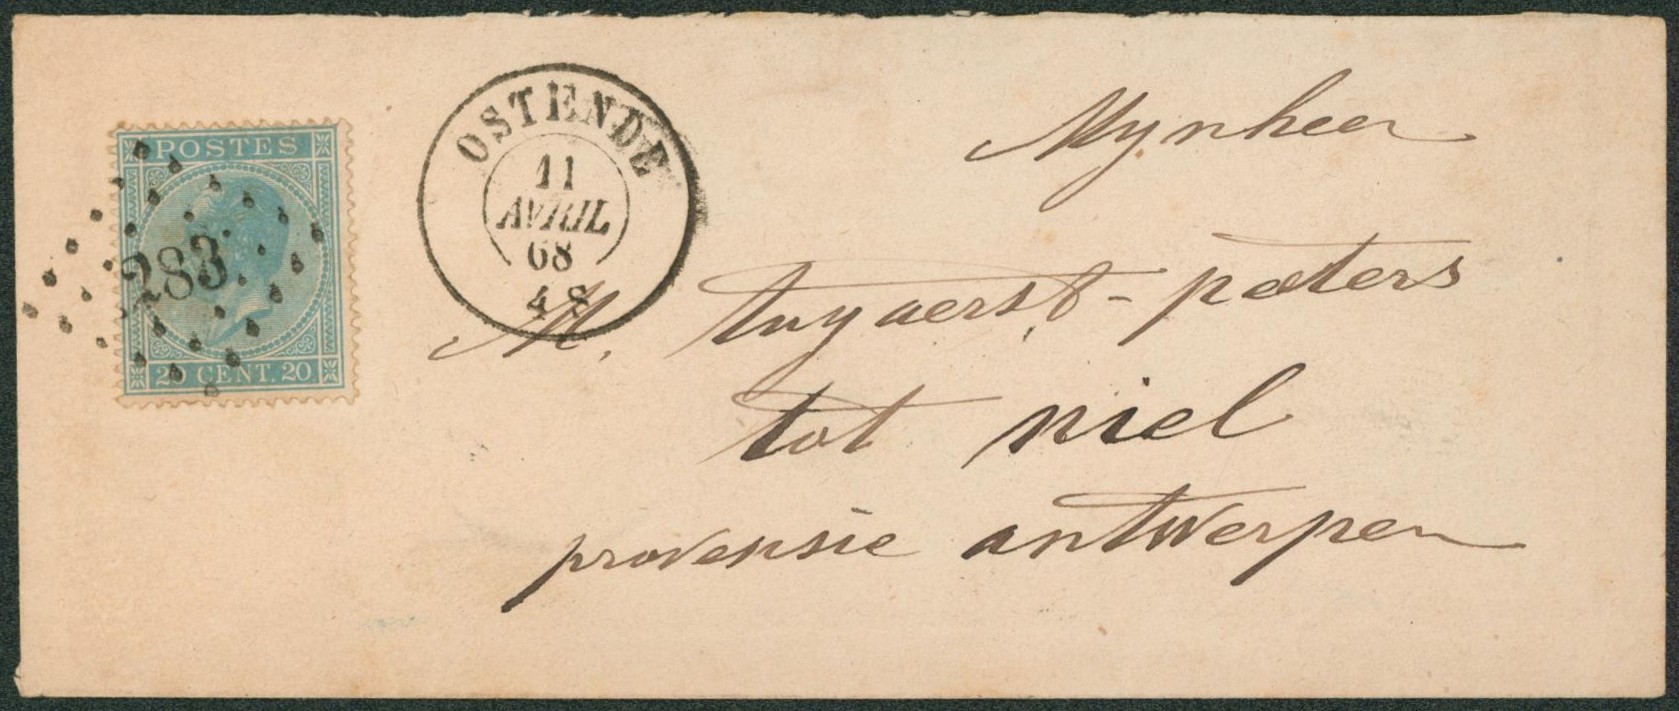 POSTES
283
20 CENT. 20
OSTENDE
11
AVRIL
68
4 S
Mynheer
M. tuyaerst - peeters
tot niel
provensie antwerpen